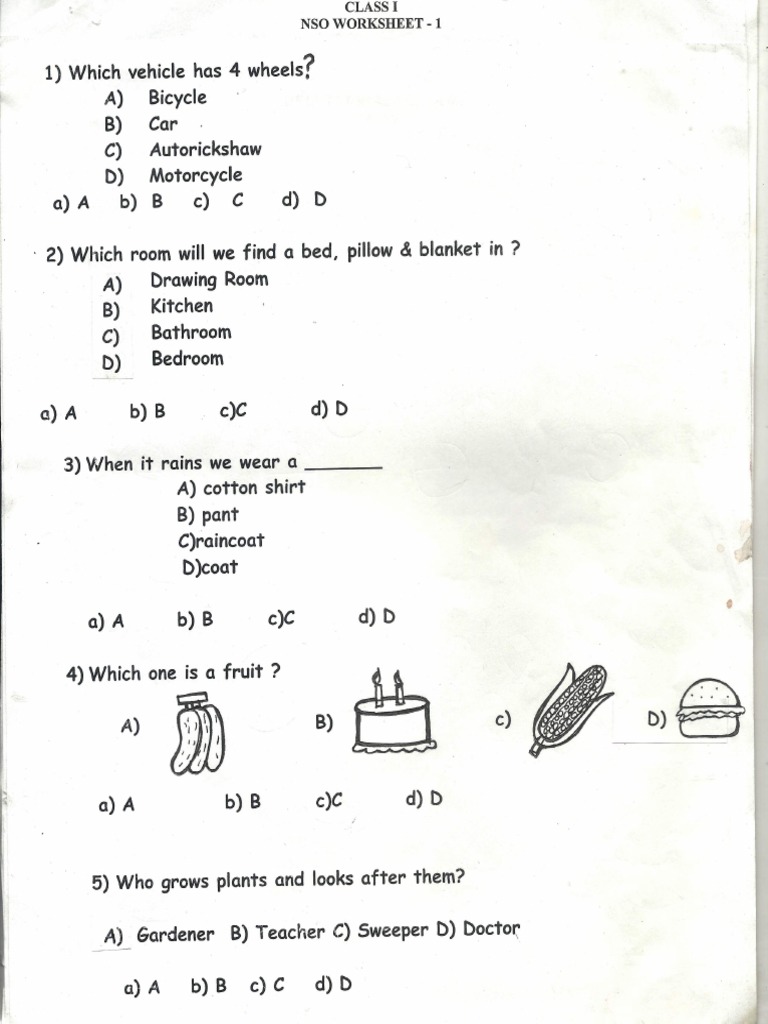 CLASS I
NSO WORKSHEET - 1
1) Which vehicle has 4 wheels?
A) Bicycle
B) Car
C) Autorickshaw
D) Motorcycle
a) A b) B c) C d) D
2) Which room will we find a bed, pillow & blanket in ?
A) Drawing Room
B) Kitchen
C) Bathroom
D) Bedroom
a) A b) B c)C d) D
3) When it rains we wear a ________
A) cotton shirt
B) pant
C)raincoat
D)coat
a) A b) B c)C d) D
4) Which one is a fruit ?
A) B) c) D)
a) A b) B c)C d) D
5) Who grows plants and looks after them?
A) Gardener B) Teacher C) Sweeper D) Doctor
a) A b) B c) C d) D